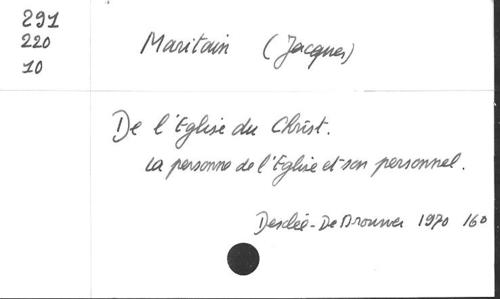 291
220
10
Maritain (Jacques)
De l'Eglise du Christ.
La personne de l'Eglise et son personnel.
Desclée-De Brouwer 1970 160